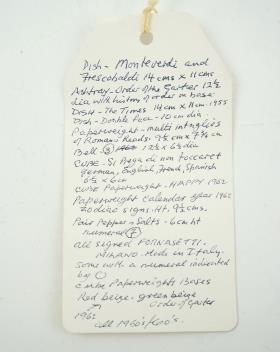 Dish - Monteverdi and
Frescobaldi 14 cms x 11 cms
Ashtray - Order of the Garter 12½
dia with history of order on base
DISH - The Times 14cm x 11cm - 1955
Dish - Double Face - 10cm dia.
Paperweight - multi intaglios
of Romano Heads. 9½cm x 7¾cm
Bell 12½ x 6½ dia
CUBE - Si Prega di non toccare
German, English, French, Spanish
6½ x 6cm
CUBE Paperweight - HAPPY 1962
Paperweight Calendar year 1962
Zodiac signs. Ht. 9½cms.
Pair Pepper & Salts - 6cm ht
numeral
all signed FORNASETTI.
MILANO. Made in Italy.
some with a numeral indicated
by
cube Paperweights Bases
Red beige - green beige
1962 Order of Garter
all 1950's/60's.